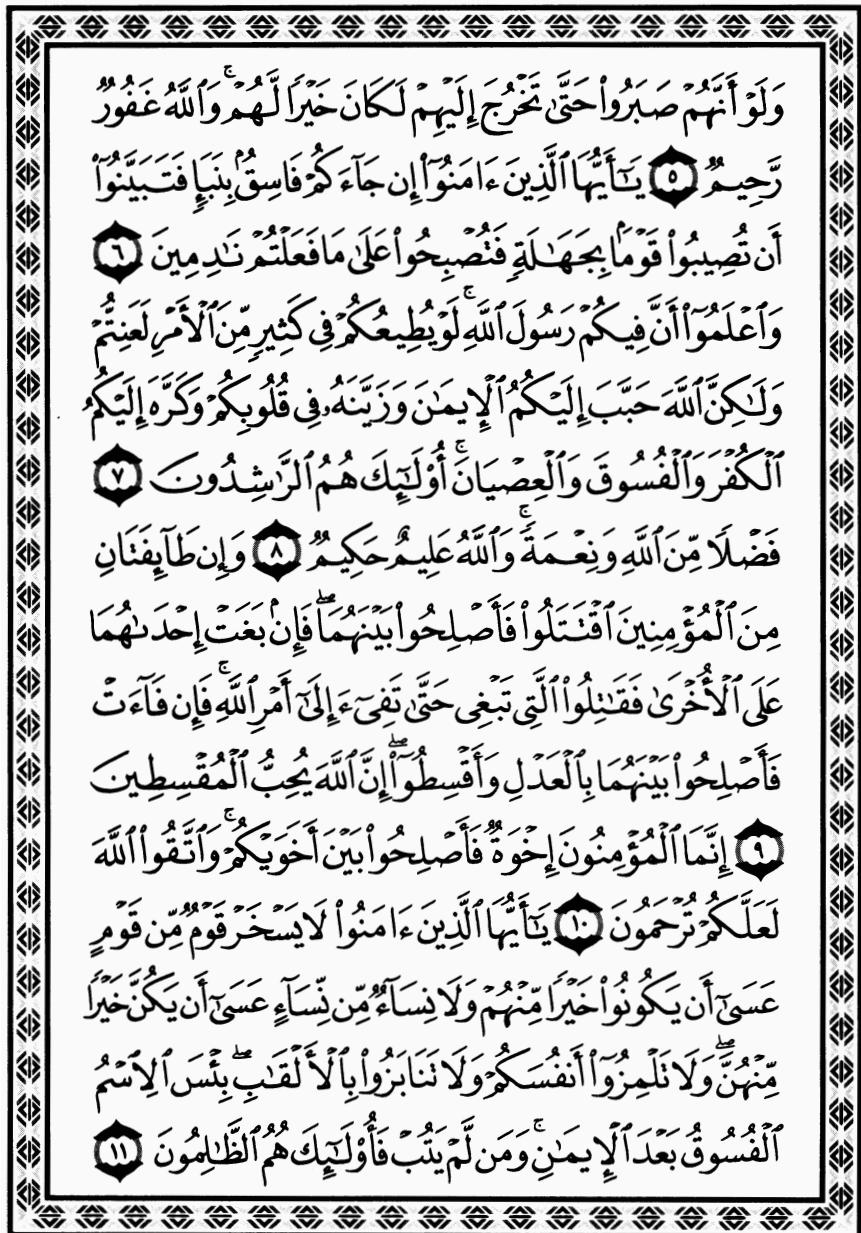 وَلَوۡ أَنَّهُمۡ صَبَرُواْ حَتَّىٰ تَخۡرُجَ إِلَيۡهِمۡ لَكَانَ خَيۡرٗا لَّهُمۡۚ وَٱللَّهُ غَفُورٞ
رَّحِيمٞ ٥ يَـٰٓأَيُّهَا ٱلَّذِينَ ءَامَنُوٓاْ إِن جَآءَكُمۡ فَاسِقُۢ بِنَبَإٖ فَتَبَيَّنُوٓاْ
أَن تُصِيبُواْ قَوۡمَۢا بِجَهَٰلَةٖ فَتُصۡبِحُواْ عَلَىٰ مَا فَعَلۡتُمۡ نَٰدِمِينَ ٦
وَٱعۡلَمُوٓاْ أَنَّ فِيكُمۡ رَسُولَ ٱللَّهِۚ لَوۡ يُطِيعُكُمۡ فِي كَثِيرٖ مِّنَ ٱلۡأَمۡرِ لَعَنِتُّمۡ
وَلَٰكِنَّ ٱللَّهَ حَبَّبَ إِلَيۡكُمُ ٱلۡإِيمَٰنَ وَزَيَّنَهُۥ فِي قُلُوبِكُمۡ وَكَرَّهَ إِلَيۡكُمُ
ٱلۡكُفۡرَ وَٱلۡفُسُوقَ وَٱلۡعِصۡيَانَۚ أُوْلَـٰٓئِكَ هُمُ ٱلرَّٰشِدُونَ ٧
فَضۡلٗا مِّنَ ٱللَّهِ وَنِعۡمَةٗۚ وَٱللَّهُ عَلِيمٌ حَكِيمٞ ٨ وَإِن طَآئِفَتَانِ
مِنَ ٱلۡمُؤۡمِنِينَ ٱقۡتَتَلُواْ فَأَصۡلِحُواْ بَيۡنَهُمَاۖ فَإِنۢ بَغَتۡ إِحۡدَىٰهُمَا
عَلَى ٱلۡأُخۡرَىٰ فَقَٰتِلُواْ ٱلَّتِي تَبۡغِي حَتَّىٰ تَفِيٓءَ إِلَىٰٓ أَمۡرِ ٱللَّهِۚ فَإِن فَآءَتۡ
فَأَصۡلِحُواْ بَيۡنَهُمَا بِٱلۡعَدۡلِ وَأَقۡسِطُوٓاْۖ إِنَّ ٱللَّهَ يُحِبُّ ٱلۡمُقۡسِطِينَ
٩ إِنَّمَا ٱلۡمُؤۡمِنُونَ إِخۡوَةٞ فَأَصۡلِحُواْ بَيۡنَ أَخَوَيۡكُمۡۚ وَٱتَّقُواْ ٱللَّهَ
لَعَلَّكُمۡ تُرۡحَمُونَ ١٠ يَـٰٓأَيُّهَا ٱلَّذِينَ ءَامَنُواْ لَا يَسۡخَرۡ قَوۡمٞ مِّن قَوۡمٍ
عَسَىٰٓ أَن يَكُونُواْ خَيۡرٗا مِّنۡهُمۡ وَلَا نِسَآءٞ مِّن نِّسَآءٍ عَسَىٰٓ أَن يَكُنَّ خَيۡرٗا
مِّنۡهُنَّۖ وَلَا تَلۡمِزُوٓاْ أَنفُسَكُمۡ وَلَا تَنَابَزُواْ بِٱلۡأَلۡقَٰبِۖ بِئۡسَ ٱلِٱسۡمُ
ٱلۡفُسُوقُ بَعۡدَ ٱلۡإِيمَٰنِۚ وَمَن لَّمۡ يَتُبۡ فَأُوْلَـٰٓئِكَ هُمُ ٱلظَّٰلِمُونَ ١١